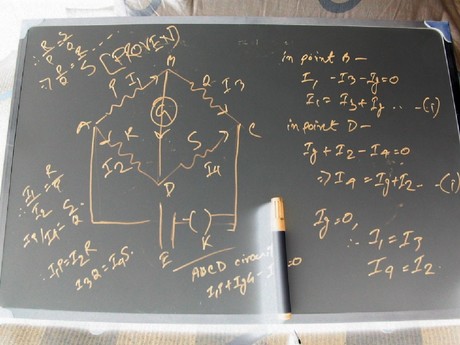 ∴ R/P = S/Q
⇒ P/Q = R/S
[PROVED]
B
P I1
Q I3
G
A
C
R
I2
S
I4
D
E
K
I1/I2 = R/P
I4/I3 = Q/S
∴ I1P = I2R
I3Q = I4S
ABCD circuit
I1P + IgG - =0
in point B-
I1 - I3 - Ig = 0
I1 = I3 + Ig ... -(i)
in point D-
Ig + I2 - I4 = 0
⇒ I4 = Ig + I2 - -(i)
Ig = 0,
∴ I1 = I3
I4 = I2.